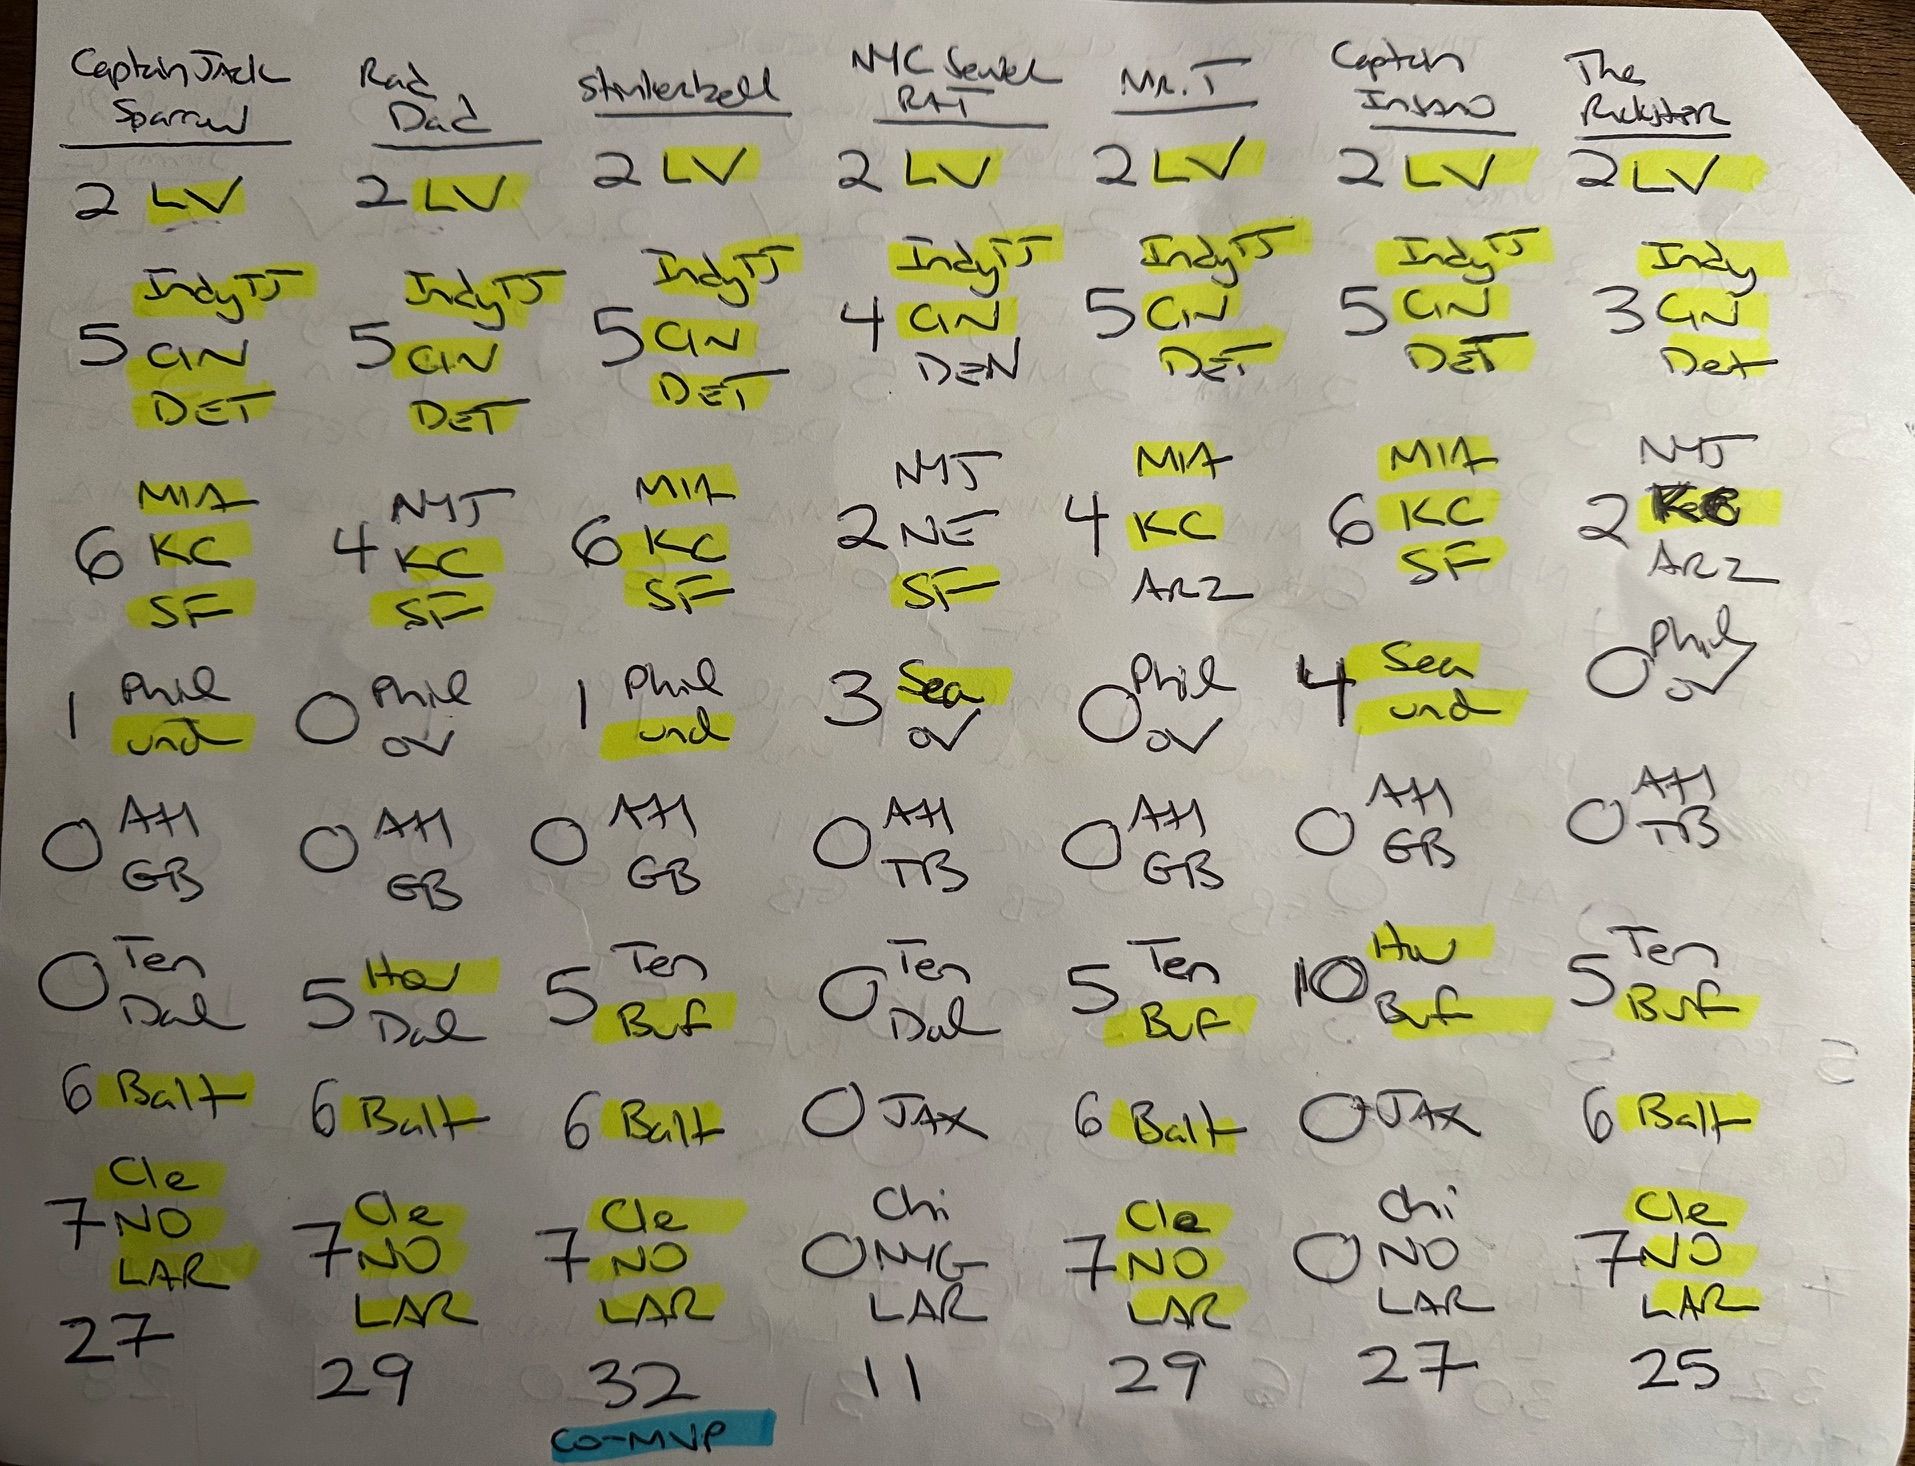 Captain Jack
Sparrow
2 LV
Indy TJ
5 CIN
DET
MIA
6 KC
SF
1 Phil
und
0 ATl
GB
0 Ten
Dal
6 Balt
Cle
7 NO
LAR
27
Rad
Dad
2 LV
Indy TJ
5 CIN
DET
NYJ
4 KC
SF
0 Phil
OV
0 ATl
GB
5 Hou
Dal
6 Balt
Cle
7 NO
LAR
29
Stinkerbell
2 LV
Indy TJ
5 CIN
DET
MIA
6 KC
SF
1 Phil
und
0 ATl
GB
5 Ten
Buf
6 Balt
Cle
7 NO
LAR
32
CO-MVP
NYC Sewer
RAT
2 LV
Indy TJ
4 CIN
DEN
NYJ
2 NE
SF
3 Sea
OV
0 ATl
TB
0 Ten
Dal
0 JAX
Chi
0 NYG
LAR
11
Mr. T
2 LV
Indy TJ
5 CIN
DET
MIA
4 KC
ARZ
0 Phil
OV
0 ATl
GB
5 Ten
Buf
6 Balt
Cle
7 NO
LAR
29
Captain
Insano
2 LV
Indy TJ
5 CIN
DET
MIA
6 KC
SF
4 Sea
und
0 ATl
GB
10 Hou
Buf
0 JAX
Chi
0 NO
LAR
27
The
Rickster
2 LV
Indy
3 CIN
Det
NYJ
2 KC
ARZ
0 Phil
OV
0 ATl
TB
5 Ten
Buf
6 Balt
Cle
7 NO
LAR
25